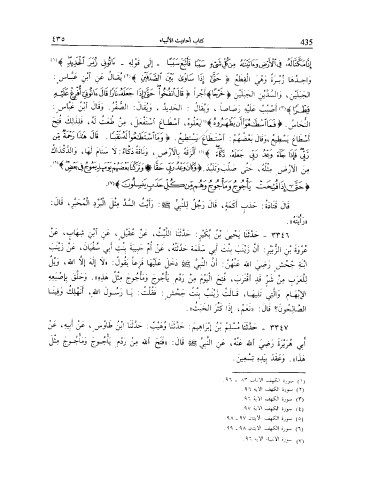 ٤٣٥ كتاب أحاديث الأنبياء 435
إِنَّا مَكَّنَّا لَهُ فِي الْأَرْضِ وَآتَيْنَاهُ مِنْ كُلِّ شَيْءٍ سَبَبًا فَأَتْبَعَ سَبَبًا ـ إلى قوله ـ ءَاتُونِي زُبَرَ الْحَدِيدِ﴾(١)
واحدها زُبْرَةٌ وهي القِطَعُ ﴿حَتَّى إِذَا سَاوَى بَيْنَ الصَّدَفَيْنِ﴾(٢) يُقَالُ عن ابن عباس:
الجَبَلَيْنِ، والسُّدَّيْنِ الجَبَلَيْنِ ﴿خَرْجًا﴾ أجراً ﴿قَالَ انْفُخُوا حَتَّى إِذَا جَعَلَهُ نَارًا قَالَ ءَاتُونِي أُفْرِغْ عَلَيْهِ
قِطْرًا﴾(٣) أَصْبُبْ عليه رَصَاصاً، ويُقالُ: الحديد، ويُقالُ: الصُّفْرُ. وقال ابن عباس:
النُّحَاسُ. ﴿فَمَا اسْطَاعُوا أَنْ يَظْهَرُوهُ﴾(٤) يَعْلُوهُ، اسْطَاعَ اسْتَفْعَلَ، مِن طُعْتُ لَهُ، فَلِذَلِكَ فُتِحَ
أَسْطَاعَ يَسْطِيعُ، وقال بعضهم: اسْتَطَاعَ يَسْتَطِيعُ. ﴿وَمَا اسْتَطَاعُوا لَهُ نَقْبًا. قَالَ هَذَا رَحْمَةٌ مِنْ
رَبِّي فَإِذَا جَاءَ وَعْدُ رَبِّي جَعَلَهُ دَكَّاءَ﴾(٥) أَلْزَقَهُ بالأرض، وناقةٌ دَكَّاءُ: لا سَنَامَ لها، والدَّكْدَاكُ
من الأرضِ مِثْلُهُ، حتى صَلُبَ وتَلَبَّدَ. ﴿وَكَانَ وَعْدُ رَبِّي حَقًّا وَتَرَكْنَا بَعْضَهُمْ يَوْمَئِذٍ يَمُوجُ فِي بَعْضٍ﴾(٦)
﴿حَتَّى إِذَا فُتِحَتْ يَأْجُوجُ وَمَأْجُوجُ وَهُمْ مِنْ كُلِّ حَدَبٍ يَنْسِلُونَ﴾(٧).
قال قَتَادَةُ: حَدَبٍ أَكَمَةٍ، قال رَجُلٌ للنبيِّ ﷺ: رَأَيْتُ السَّدَّ مِثْلَ البُرْدِ المُحَبَّرِ، قال:
«رَأَيْتَهُ».
٣٣٤٦ - حَدَّثَنَا يَحْيَى بْنُ بُكَيْرٍ: حَدَّثَنَا اللَّيْثُ، عَنْ عُقَيْلٍ، عَنِ ابْنِ شِهَابٍ، عَنْ
عُرْوَةَ بْنِ الزُّبَيْرِ: أَنَّ زَيْنَبَ بِنْتَ أَبِي سَلَمَةَ حَدَّثَتْهُ، عَنْ أُمِّ حَبِيبَةَ بِنْتِ أَبِي سُفْيَانَ، عَنْ زَيْنَبَ
ابْنَةِ جَحْشٍ رَضِيَ اللهُ عَنْهُنَّ: أَنَّ النَّبِيَّ ﷺ دَخَلَ عَلَيْهَا فَزِعاً يَقُولُ: «لَا إِلَهَ إِلَّا اللهُ، وَيْلٌ
لِلْعَرَبِ مِنْ شَرٍّ قَدِ اقْتَرَبَ، فُتِحَ الْيَوْمَ مِنْ رَدْمِ يَأْجُوجَ وَمَأْجُوجَ مِثْلُ هَذِهِ»، وَحَلَّقَ بِإِصْبَعِهِ
الإِبْهَامِ وَالَّتِي تَلِيهَا، قَالَتْ زَيْنَبُ بِنْتُ جَحْشٍ: فَقُلْتُ: يَا رَسُولَ اللهِ، أَنَهْلِكُ وَفِينَا
الصَّالِحُونَ؟ قَالَ: «نَعَمْ، إِذَا كَثُرَ الْخَبَثُ».
٣٣٤٧ - حَدَّثَنَا مُسْلِمُ بْنُ إِبْرَاهِيمَ: حَدَّثَنَا وُهَيْبٌ: حَدَّثَنَا ابْنُ طَاوُسٍ، عَنْ أَبِيهِ، عَنْ
أَبِي هُرَيْرَةَ رَضِيَ اللهُ عَنْهُ، عَنِ النَّبِيِّ ﷺ قَالَ: «فَتَحَ اللهُ مِنْ رَدْمِ يَأْجُوجَ وَمَأْجُوجَ مِثْلَ
هَذَا»، وَعَقَدَ بِيَدِهِ تِسْعِينَ.
(١) سورة الكهف الآيات ٨٣ - ٩٦.
(٢) سورة الكهف الآية ٩٦.
(٣) سورة الكهف الآية ٩٦.
(٤) سورة الكهف الآية ٩٧.
(٥) سورة الكهف الآيتان ٩٧ - ٩٨.
(٦) سورة الكهف الآيتان ٩٨ - ٩٩.
(٧) سورة الأنبياء الآية ٩٦.